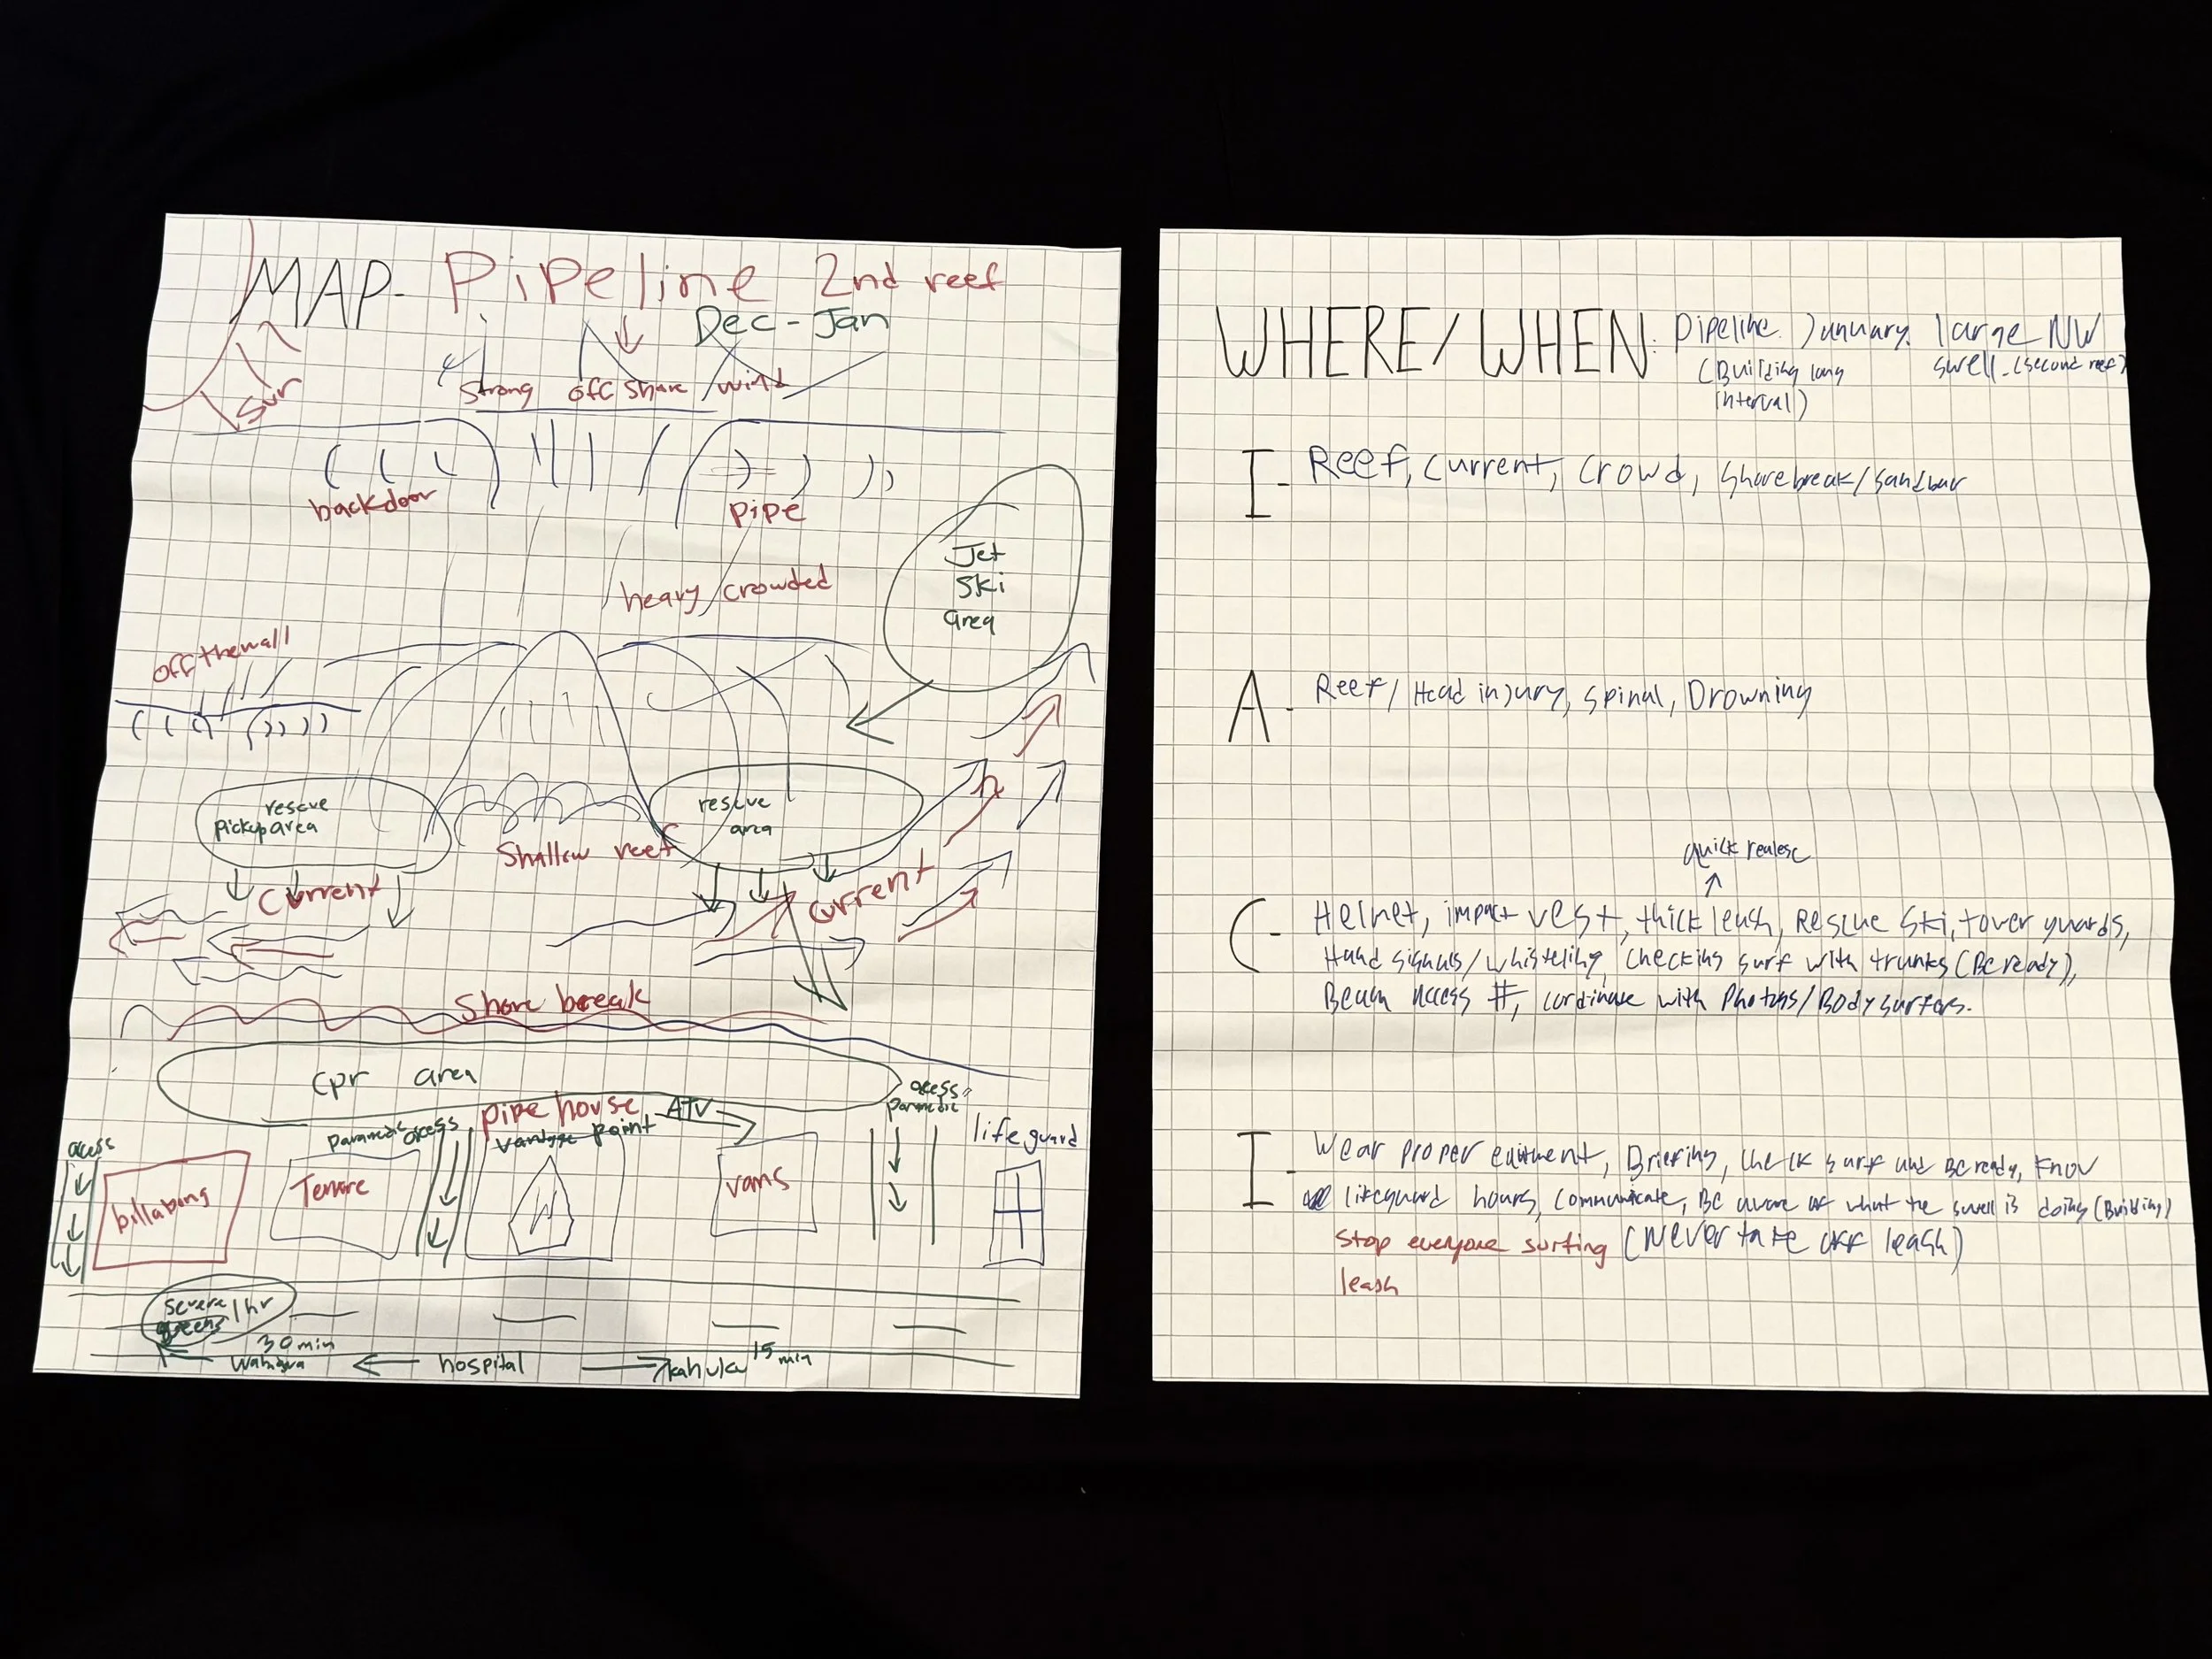 MAP- Pipeline 2nd reef
Dec-Jan
Strong off shore wind
backdoor
pipe
Jet
Ski
area
heavy/crowded
off the wall
rescue
pickup area
rescue
area
Shallow reef
Current
Current
Shore break
cpr area
acess
Paramedic acess
pipe house
vantage point
ATV
acess
Paramedic
lifeguard
billabong
vans
severe/hr
queens
30 min
hospital
kahuku 15 min
WHERE/WHEN: Pipeline January. large NW
(Building long
interval)
swell. (second reef)
I- Reef, Current, Crowd, shorebreak/sandbar
A- Reef/Head injury, spinal, Drowning
quick realese
C- Helmet, impact vest, thick leash, Rescue Ski, tower guards,
Hand signals/whisteling, checking surf with trunks (Be ready),
Beach access #, cordinate with Photogs/Body surfers.
I- Wear proper equitment, Briefing, check surf and Be ready, Know
lifeguard hours, communicate, Be aware of what the swell is doing (Building)
Stop everyone surfing (Never take off leash)
leash